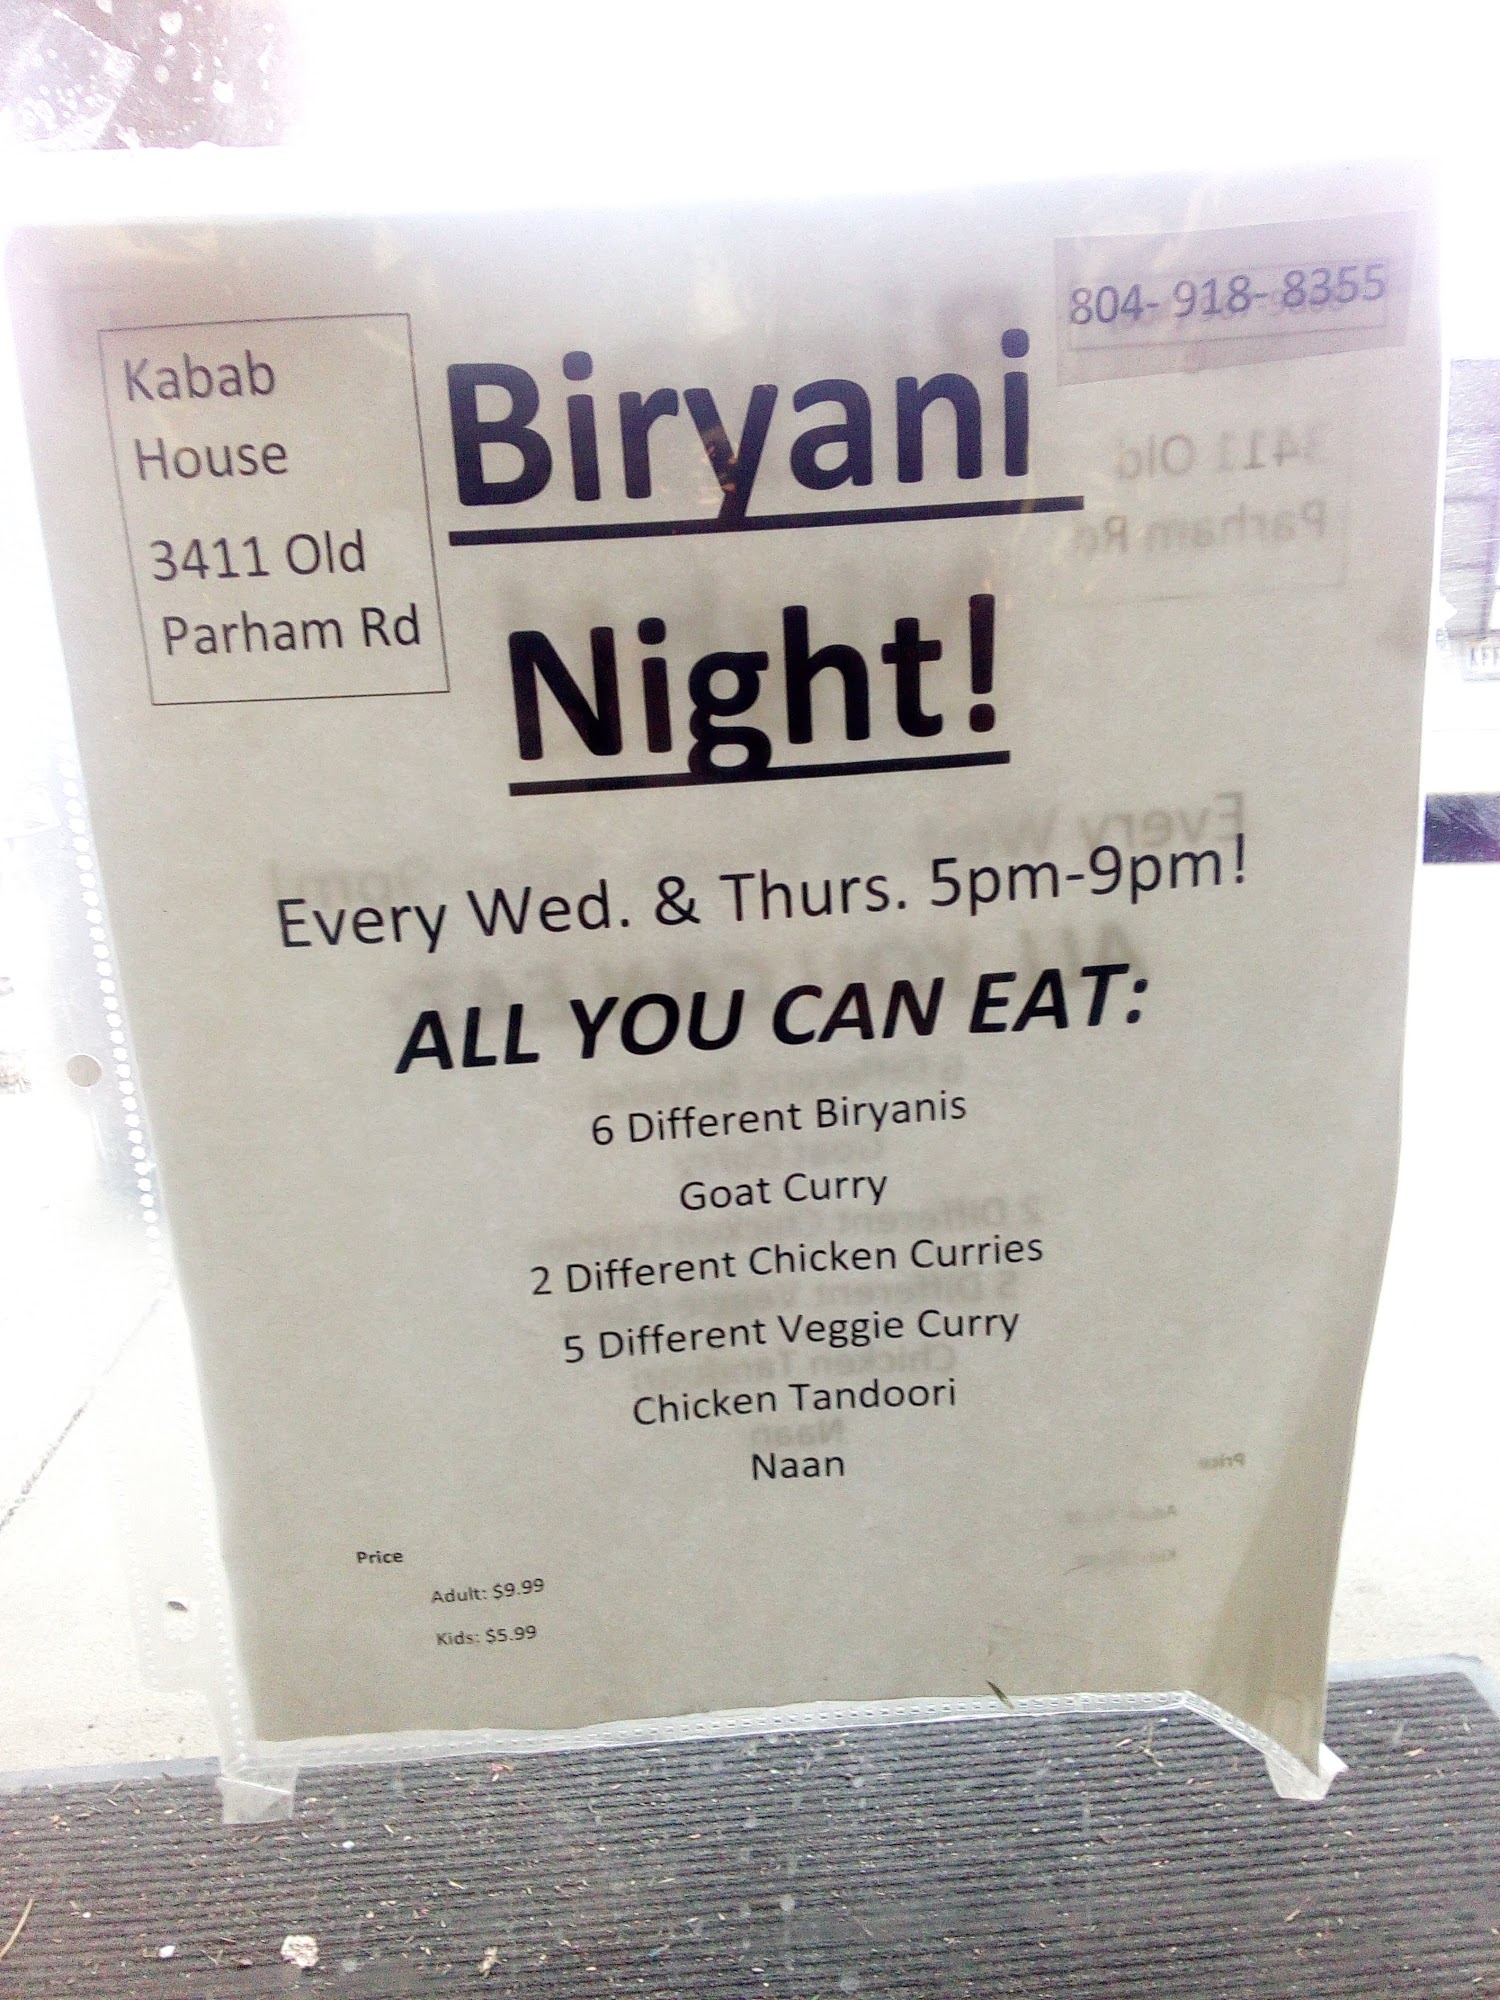 Kabab
House
3411 Old
Parham Rd
804- 918- 8355
Biryani
Night!
Every Wed. & Thurs. 5pm-9pm!
ALL YOU CAN EAT:
6 Different Biryanis
Goat Curry
2 Different Chicken Curries
5 Different Veggie Curry
Chicken Tandoori
Naan
Price
Adult: $9.99
Kids: $5.99